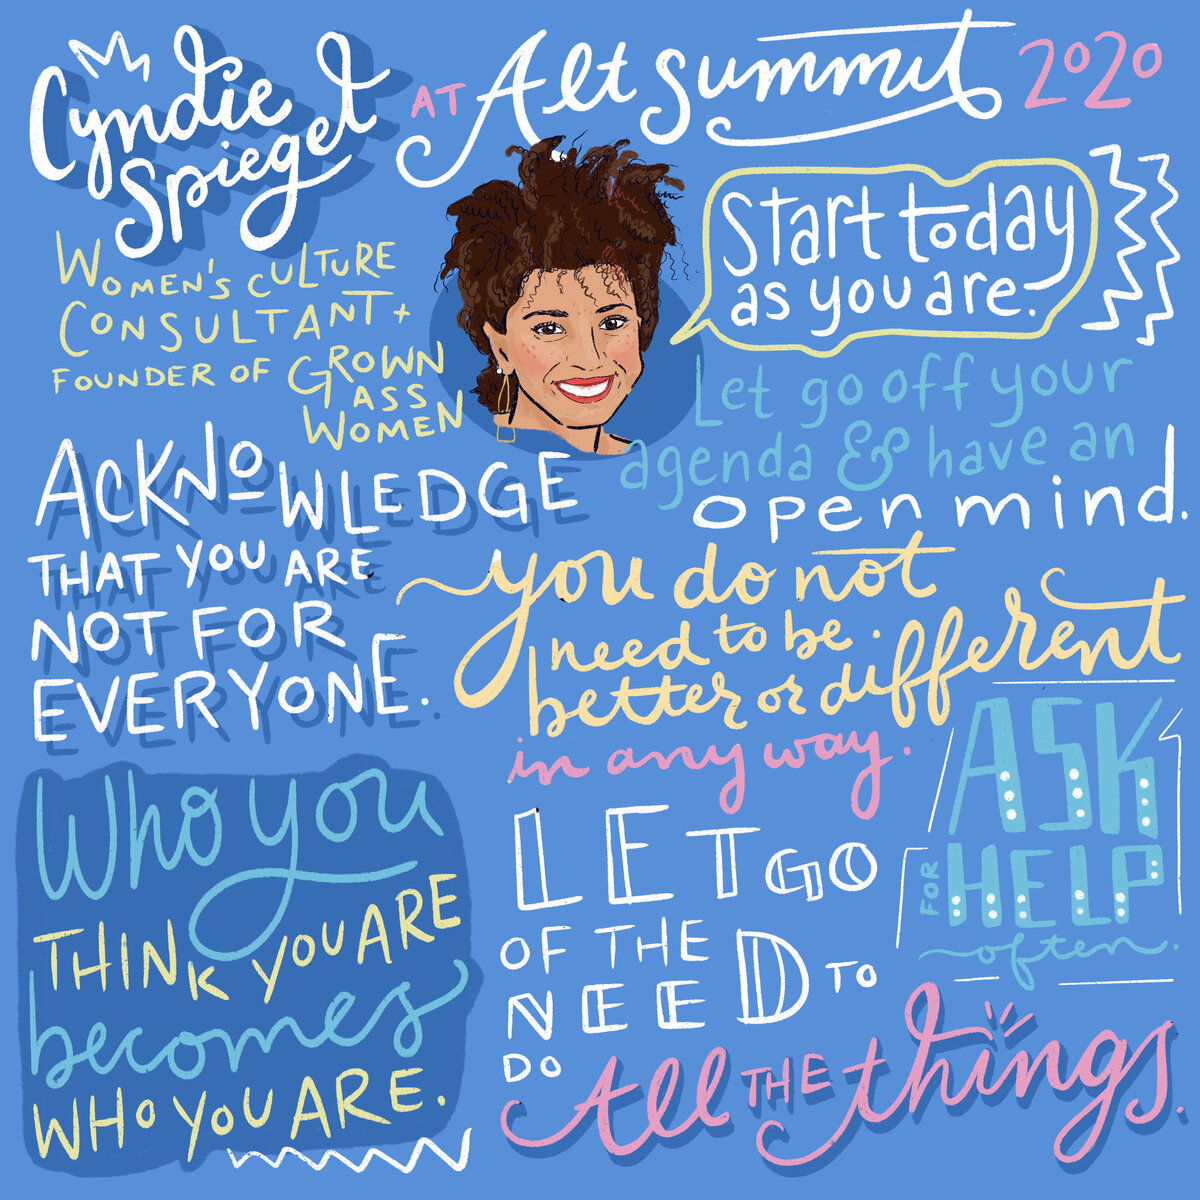 Cyndie
Spiegel
AT Alt Summit 2020
WOMEN'S CULTURE
CONSULTANT +
FOUNDER OF GROWN
ASS
WOMEN
Start today
as you are.
Let go off your
agenda & have an
open mind.
ACKNOWLEDGE
THAT YOU ARE
NOT FOR
EVERYONE.
you do not
need to be
better or different
in any way.
Who you
THINK YOU ARE
becomes
WHO YOU ARE.
ASK
FOR HELP
often.
LET GO
OF THE
NEED TO
DO All THE things.